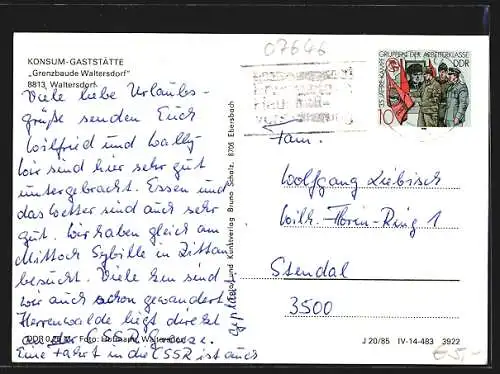 07646
KONSUM-GASTSTÄTTE
„Grenzbaude Waltersdorf"
8813 Waltersdorf
35 JAHRE KAMPFGRUPPEN DER ARBEITERKLASSE
DDR
10
Viele liebe Urlaubs-
grüße senden Euch
Wilfried und Wally
Wir sind hier sehr gut
untergebracht. Essen und
das Wetter sind auch sehr
gut. Wir haben gleich am
Mittoch Sybille in Zittau
besucht. Viele km sind
wir auch schon gewandert
Herrenwalde liegt direkt
an der CSSR Grenze.
Eine Fahrt in die CSSR ist auch
geplant
und Kunstverlag Bruno Scholz, 8705 Ebersbach
Fam.
Wolfgang Liebisch
Wilh.-Florin-Ring 1
Stendal
3500
DDR Foto: Hofmann, Waltersdorf
J 20/85 IV-14-483 3922
€ 5,-